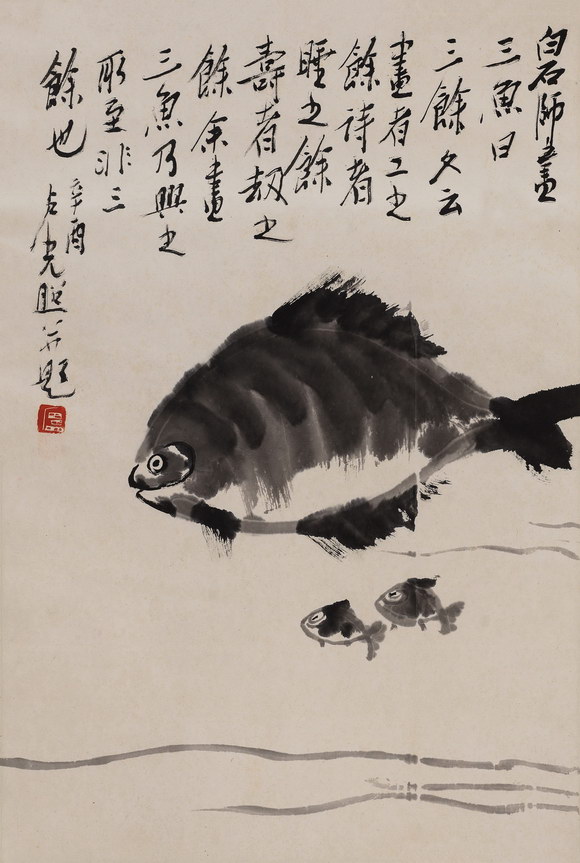 白石師畫
三魚曰
三餘又云
畫者工之
餘詩者
睡之餘
壽者劫之
餘余畫
三魚乃興之
所至非三
餘也 辛酉
卢光照并題